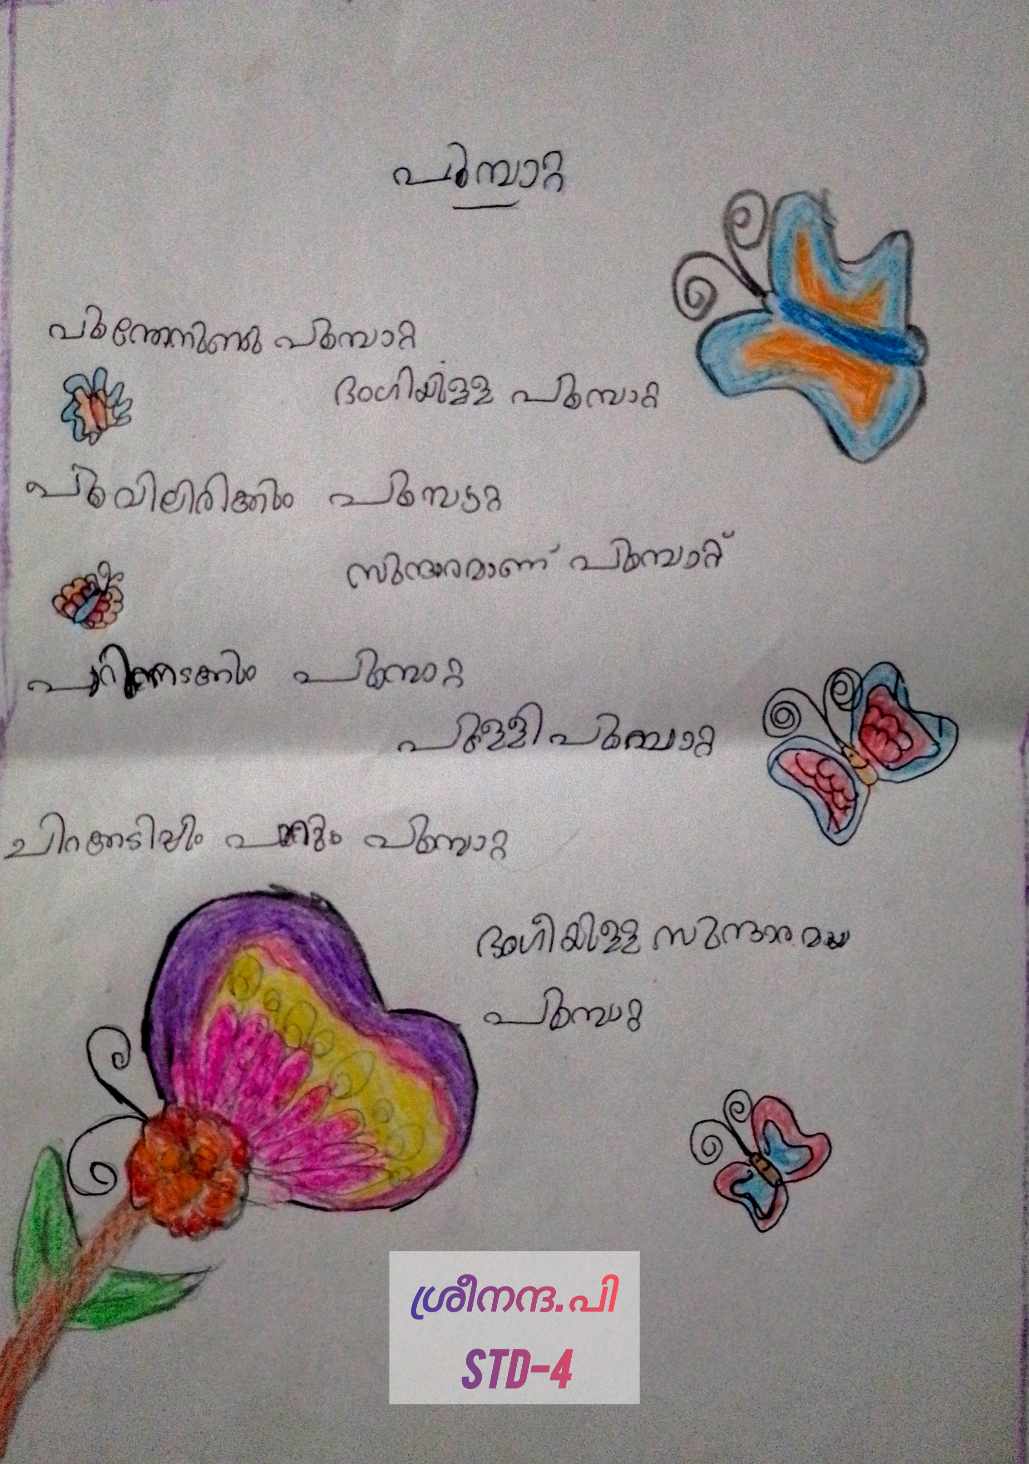 പൂമ്പാറ്റ
പൂന്തേനുണ്ണു പൂമ്പാറ്റ
ഭംഗിയുള്ള പൂമ്പാറ്റ
പൂവിലിരിക്കും പൂമ്പാറ്റ
സുന്ദരമാണ് പൂമ്പാറ്റ്
പൂമ്പാറ്റ
പുള്ളി പൂമ്പാറ്റ
ചിറകടിച്ചും പാറും പൂമ്പാറ്റ
ഭംഗീയുള്ള സുന്ദരമായ
പൂമ്പാറ്റ
ശ്രീനന്ദ.പി
STD-4